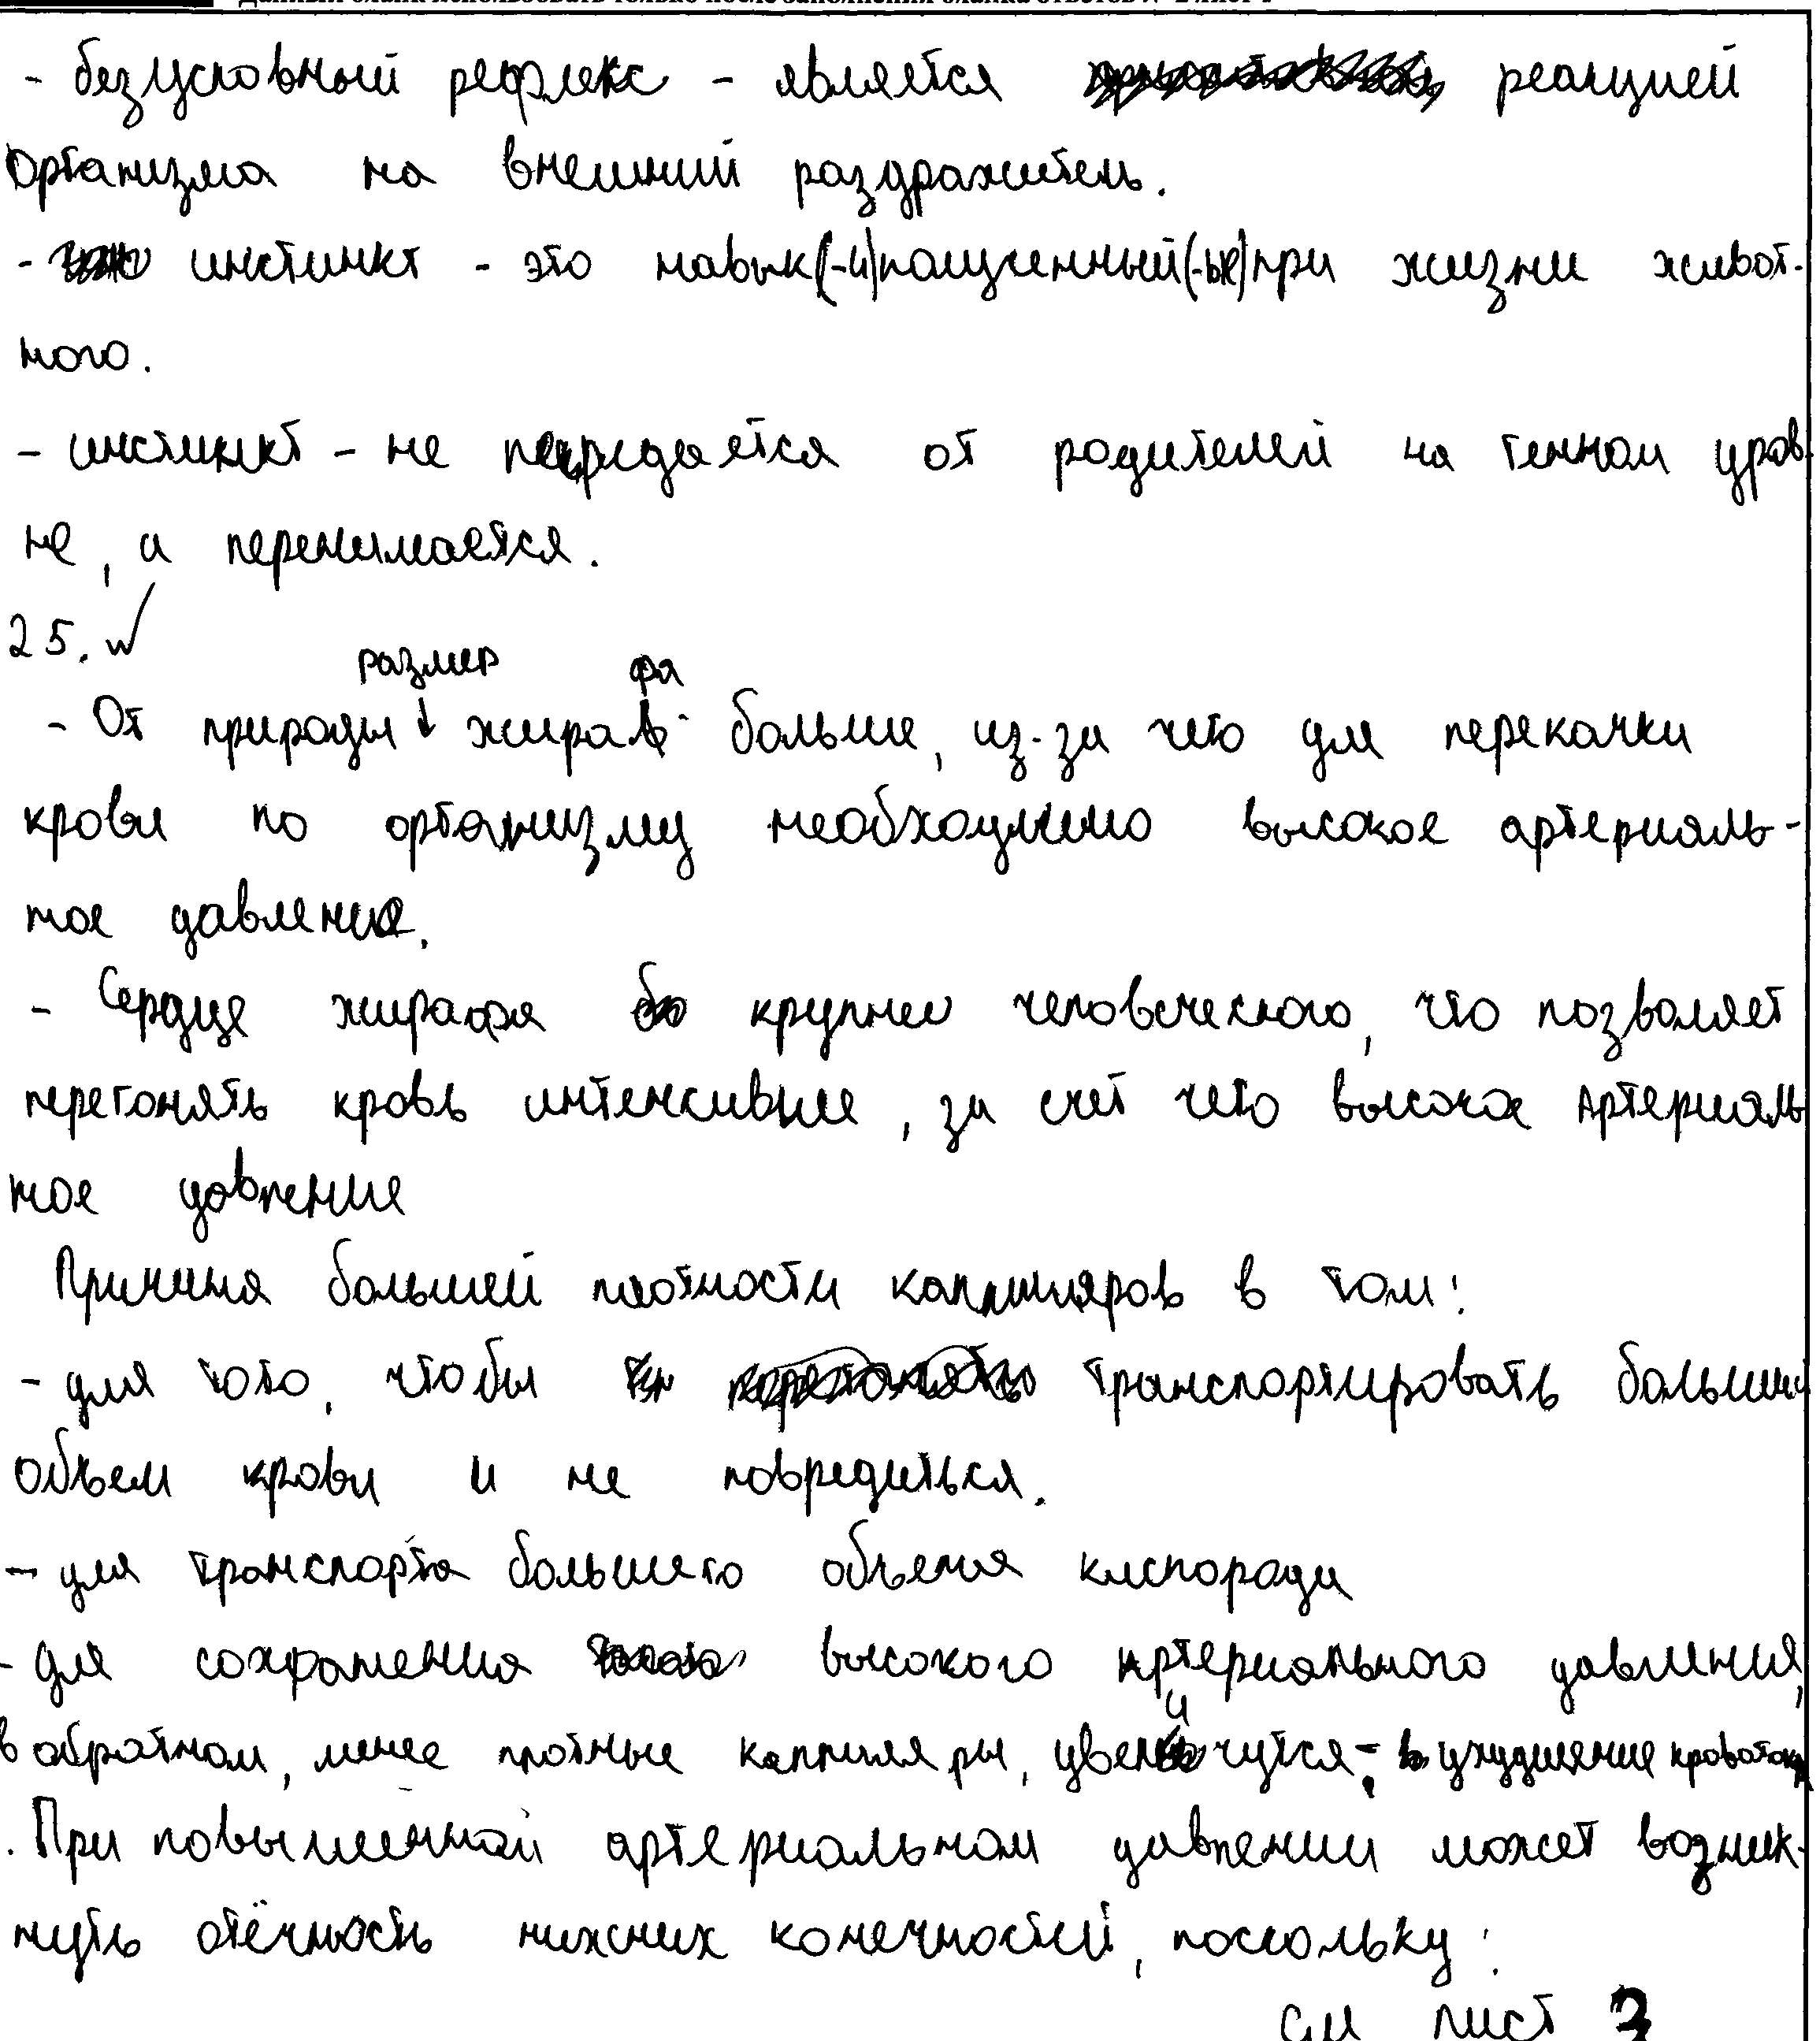 - безусловный рефлекс - является реакцией
организма на внешний раздражитель.
- инстинкт - это навык(-и)полученный(-ых)при жизни живот-
ного.
- инстинкт - не передается от родителей на генном уров
не, а перенимается.
25.
размер фа
- От природы ↓ жирафа больше, из-за чего для перекачки
крови по организму необходимо высокое артериаль-
ное давление.
- Сердце жирафа крупнее человеческого, что позволяет
перегонять кровь интенсивнее, за счет чего высокое артериаль
ное давление
Причина большей плотности капилляров в том:
- для того, чтобы транспортировать больший
объем крови и не повредиться.
- для транспорта большего объема кислорода
- для сохранения высокого артериального давления,
в обратном, менее плотные капилляры, увеличутся - ухудшение кровотока
. При повышенной артериальном давлении может возник-
нуть отёчность нижних конечностей, поскольку:
см лист 3